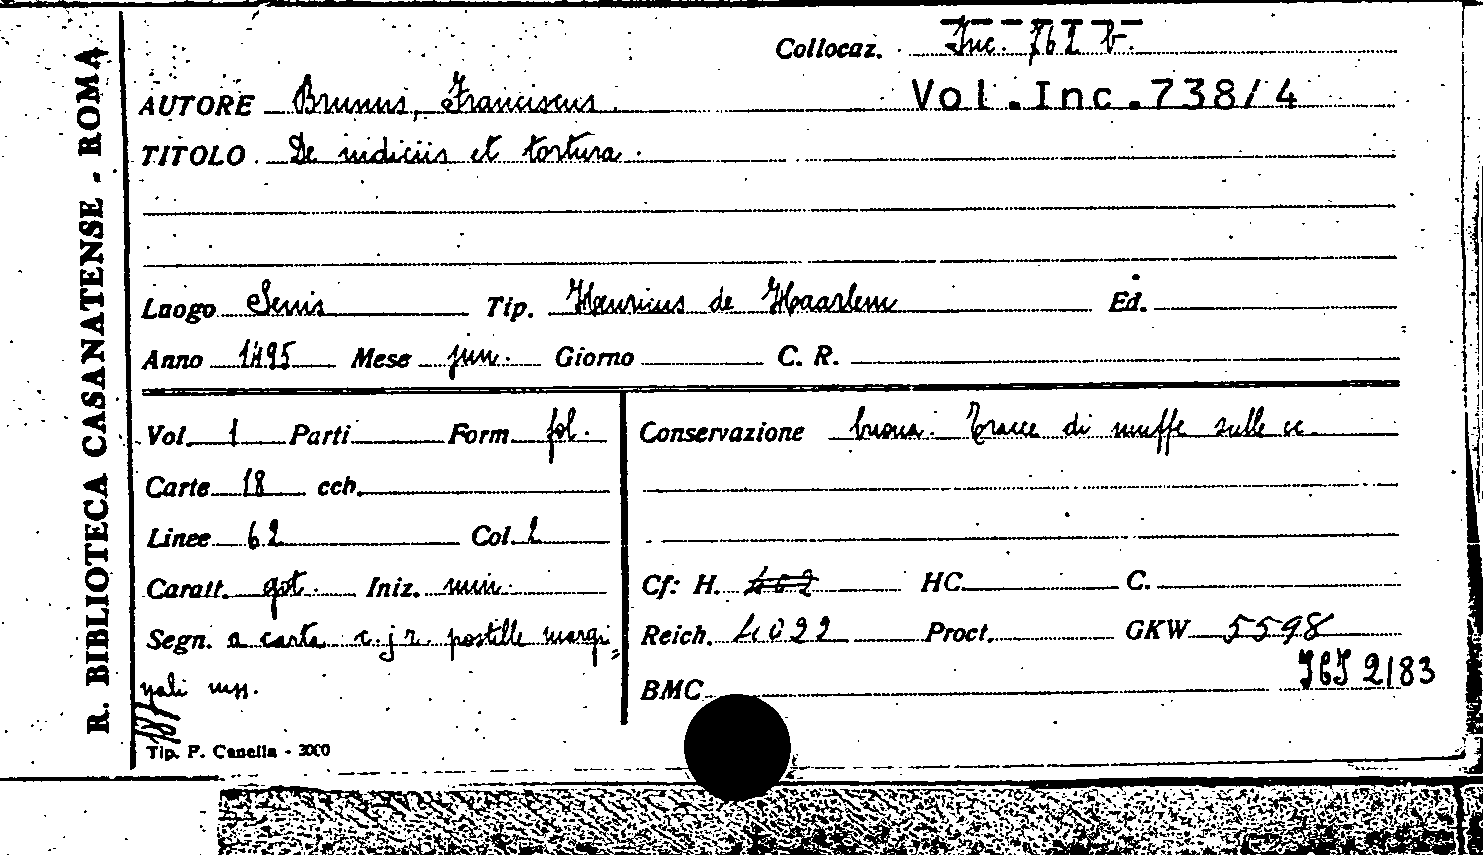 R. BIBLIOTECA CASANATENSE - ROMA
Collocaz. Inc. 762 b.
AUTORE Brunus, Franciscus. Vol.Inc.738/4
TITOLO De indiciis et tortura.
Luogo Senis Tip. Henricus de Haarlem Ed.
Anno 1495 Mese jun. Giorno C. R.
Vol. 1 Parti Form fol. Conservazione buona. Tracce di muffe sulle cc.
Carte 18 cch.
Linee 62 Col. 2
Caratt. got. Iniz. min. Cf: H. 402 HC. C.
Segn. a carta postille margi= Reich. 4022 Proct. GKW 5598
nali mss. BMC IGI 2183
Tip. P. Canella - 3000